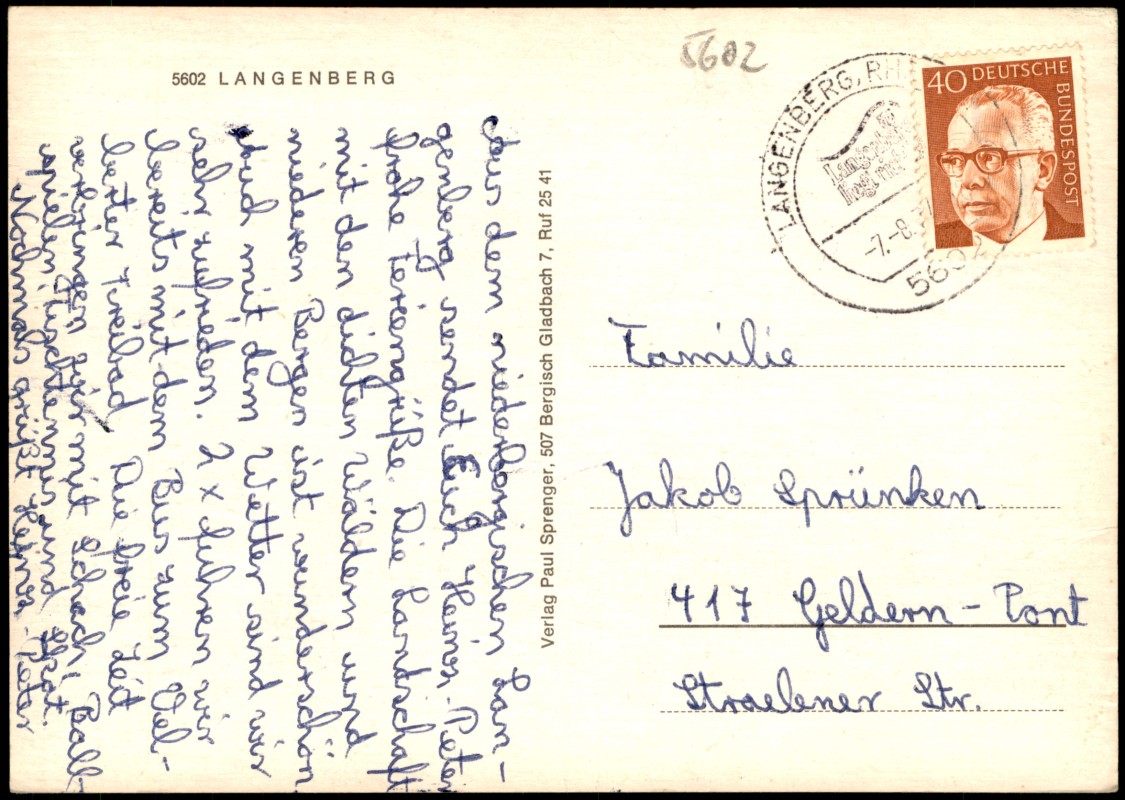 5602 LANGENBERG
5602
LANGENBERG, RH
-7.-8.
5602
40 DEUTSCHE
BUNDESPOST
Aus dem niederbergischen Lan-
genberg sendet Euch Heinz-Peter
frohe Feriengrüße. Die Landschaft
mit den dichten Wäldern und
niederen Bergen ist wunderschön
und mit dem Wetter sind wir
sehr zufrieden. 2 x fuhren wir
bereits mit dem Bus zum Vel-
berter Freibad. Die freie Zeit
verbringen wir mit Schach, Ball-
spielen, Tischtennis und Skat.
Nochmals grüßt Heinz-Peter
Verlag Paul Sprenger, 507 Bergisch Gladbach 7, Ruf 25 41
Familie
Jakob Sprünken
417 Geldern - Pont
Straelener Str.